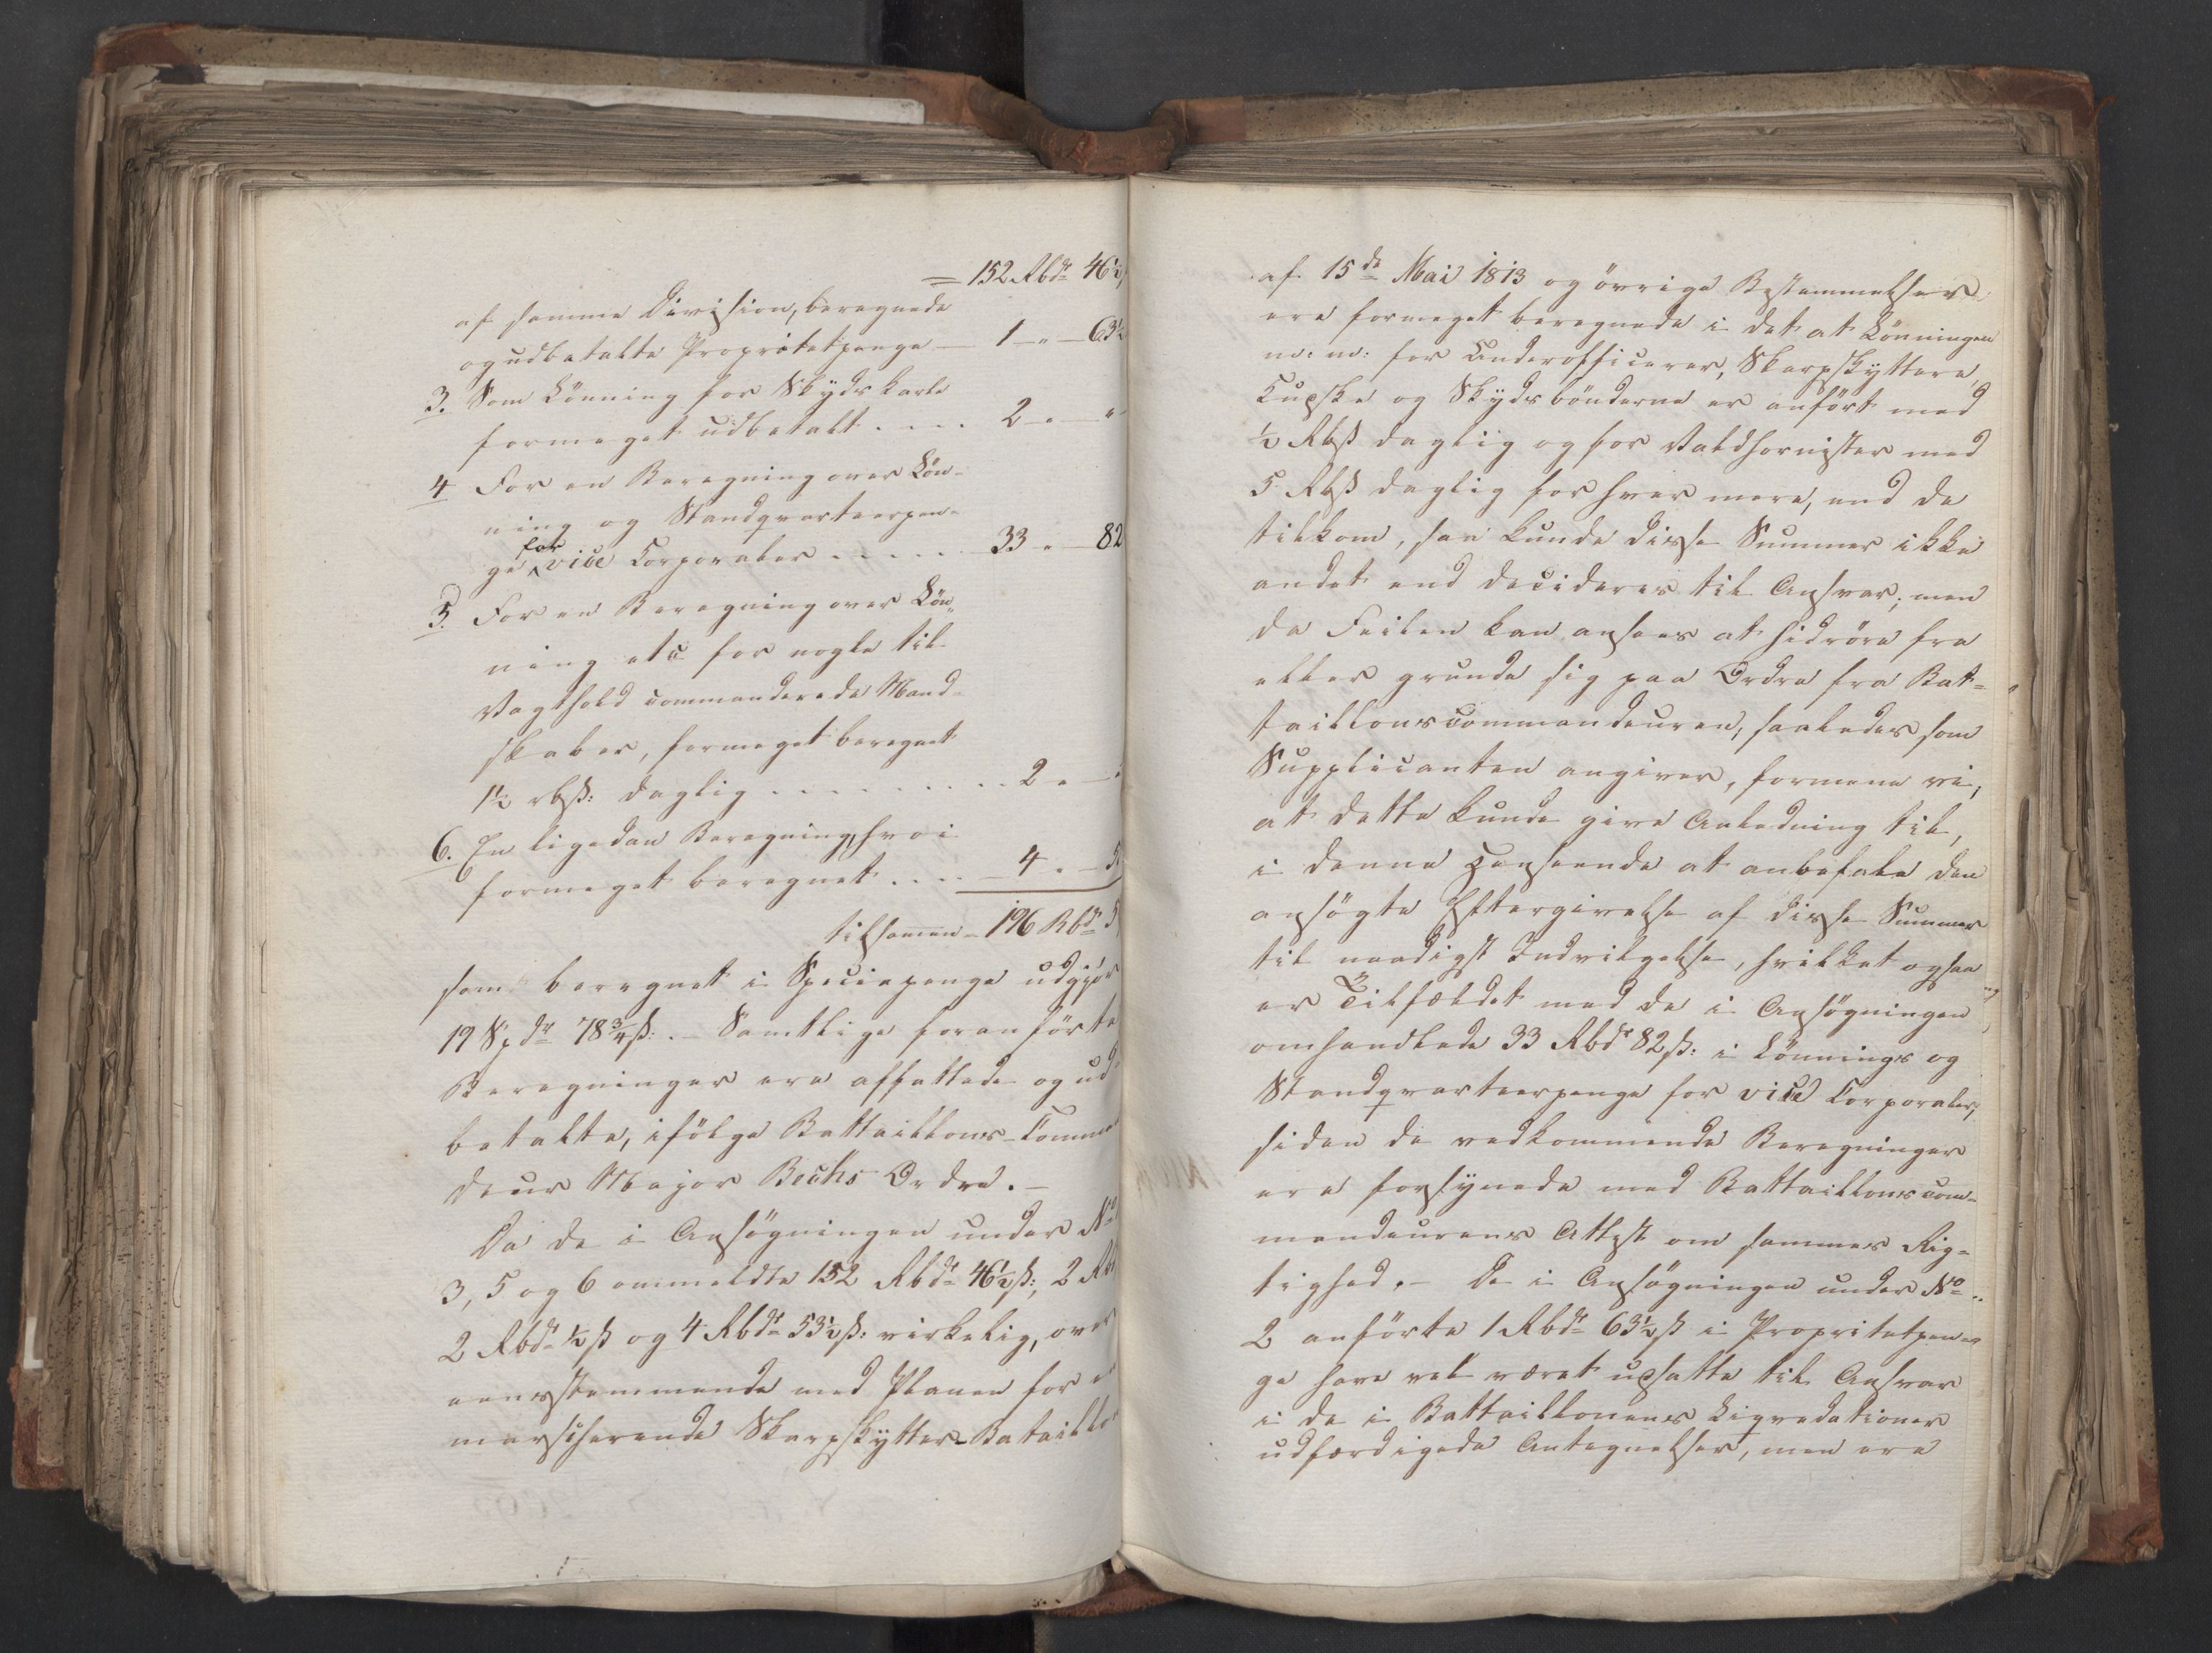 = 152 Rbdr 46½
af samme Division, beregnede
og udbetalte Propritetpenge — 1 " — 63½
3. Som Lönning for Skydskarle
formeget udbetalt . . . . 2 " — "
4 For en Beregning over Lön-
ning og Standqvarteerpen-
ge for vice Corporaler . . . . . 33 " — 82
5. For en Beregning over Lön-
ning etc for nogle til
Vagthold commanderede Mand-
skaber, formeget beregnet
1½ rbß: daglig . . . . . . . . . 2 " —
6. En ligedan Beregning, hvoi
formeget beregnet . . . . 4 " — 5
tilsamen — 196 Rbdr 5
som beregnet i Speciepenge udgjør
19 Spdr 78¾ß: . — Samtlige foranförte
Beregninger ere affattede og ud-
betalte, ifölge Battaillons-Comman
deur Major Bechs Ordre. —
Da de i Ansögningen under No
3, 5 og 6 ommeldte 152 Rbdr 46½ß:, 2 Rb
2 Rbdr ½ß og 4 Rbdr 53½ß: virkelig, over
eensstemmende med Planen for et
marscherende Skarpskytter-Bataillon
af 15de Mai 1813 og övrige Bestemmelser
ere formeget beregnede i det at Lönningen
m: m: for Underofficerer, Skarpskyttere,
Kudske og Skydsbönderne er anfört med
½ Rbß daglig og for Valdhornister med
5 Rbß daglig for hver mere, end de
tilkom, saa kunde disse Summer ikke
andet end decideres til Ansvar; men
da Feilen kan ansees at hidröre fra
eller grunde sig paa Ordre fra Bat-
taillonscommandeuren, saaledes som
Supplicanten angiver, formene vi,
at dette kunde give Anledning til,
i denne Henseende at anbefale den
ansögte Eftergivelse af disse Summer
til naadigst Indvilgelse, hvilket ogsaa
er Tilfældet med de i Ansögningen
omhandlede 33 Rbdr 82ß: i Lönnings og
Standqvarteerpenge for vice Corporaler,
siden de vedkommende Beregninger
ere forsynede med Battaillonscom-
mandeurens Attest om sammes Rig-
tighed. — De i Ansögningen under No
2 anförte 1 Rbdr 63½ß i Propritetpen-
ge have vel været udsatte til Ansvar
i de i Battaillonens Liqvidationer
udfærdigede Antegnelser, men ere